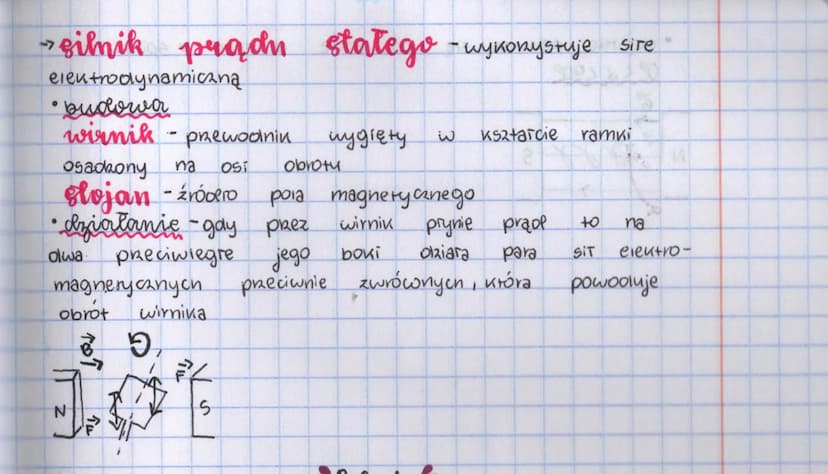 → silnik prądu stałego - wykorzystuje siłę
elektrodynamiczną
• budowa
wirnik - przewodnik wygięty w kształcie ramki
osadzony na osi obrotu
stojan - źródło pola magnetycznego
• działanie - gdy przez wirnik płynie prąd to na
dwa przeciwległe jego boki działa para sił elektro-
magnetycznych przeciwnie zwróconych, która powoduje
obrót wirnika
B
F
N
S
F